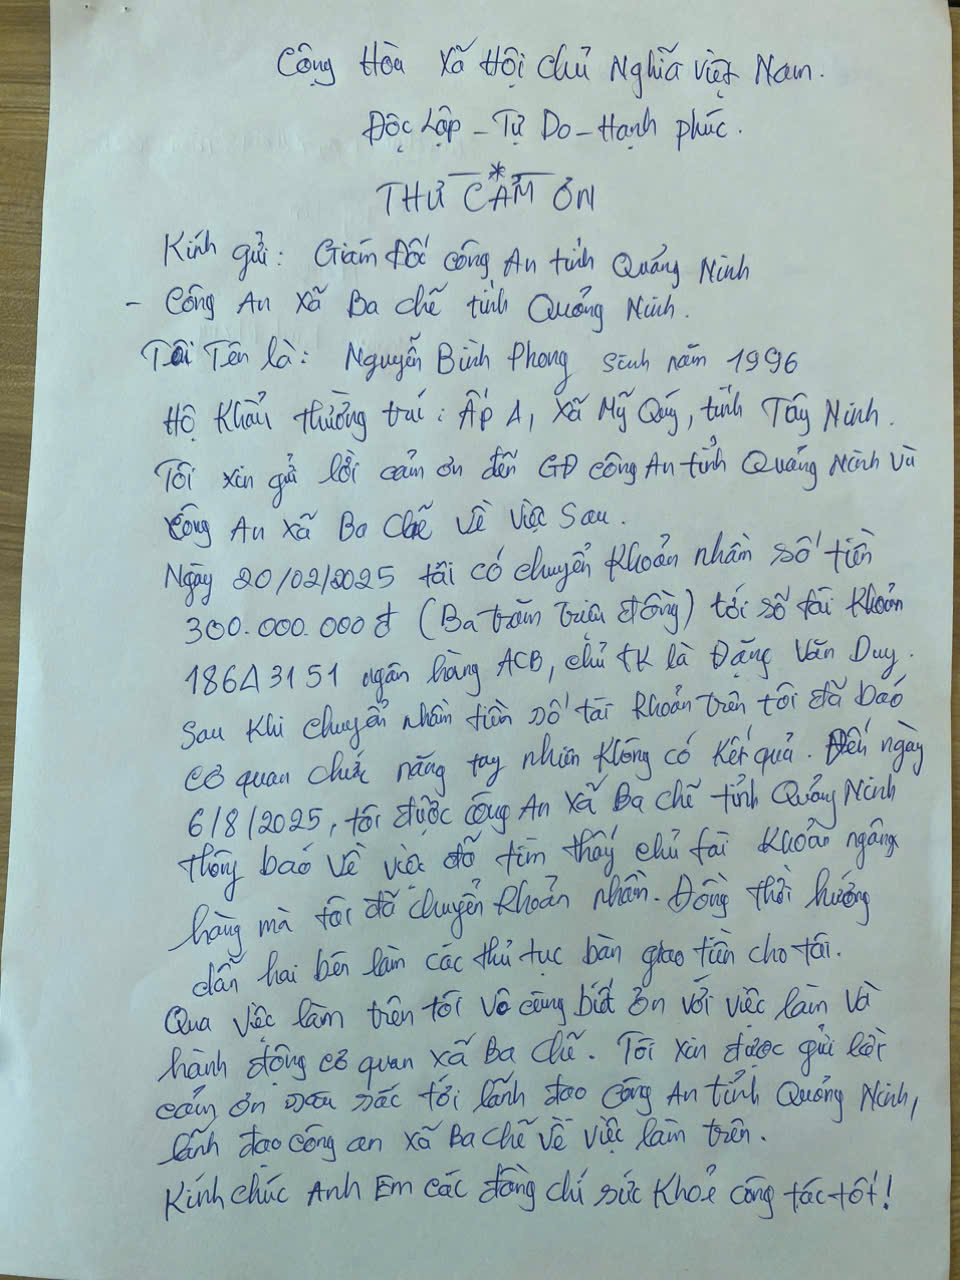 Cộng Hòa Xã Hội Chủ Nghĩa Việt Nam.
Độc Lập - Tự Do - Hạnh phúc.
THƯ CẢM ƠN
Kính gửi: Giám Đốc công An tỉnh Quảng Ninh
- Công An xã Ba chẽ tỉnh Quảng Ninh.
Tôi Tên là: Nguyễn Bình Phong sinh năm 1996
Hộ khẩu thường trú: Ấp 1, xã Mỹ Quý, tỉnh Tây Ninh.
Tôi xin gửi lời cảm ơn đến GĐ công An tỉnh Quảng Ninh và
Công An xã Ba Chẽ về việc sau.
Ngày 20/02/2025 tôi có chuyển khoản nhầm số tiền
300.000.000đ (Ba trăm triệu đồng) tới số tài khoản
ngân hàng ACB, chủ tk là Đặng Văn Duy.
Sau khi chuyển nhầm tiền số tài khoản trên tôi đã báo
cơ quan chức năng tuy nhiên không có kết quả. Đến ngày
6/8/2025, tôi được công An xã Ba chẽ tỉnh Quảng Ninh
thông báo về việc đã tìm thấy chủ tài khoản ngâng
hàng mà tôi đã chuyển khoản nhầm. Đồng thời hướng
dẫn hai bên làm các thủ tục bàn giao tiền cho tôi.
Qua việc làm trên tôi vô cùng biết ơn với việc làm và
hành động cơ quan xã Ba Chẽ. Tôi xin được gửi lời
cảm ơn sâu sắc tới lãnh đạo công An tỉnh Quảng Ninh,
lãnh đạo công an xã Ba Chẽ về việc làm trên.
Kính chúc Anh Em các đồng chí sức khoẻ công tác tốt!